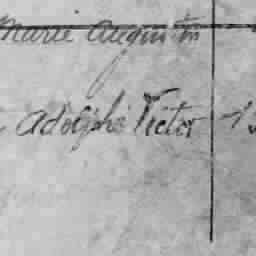 Marie Augustin
Adolphe Victor